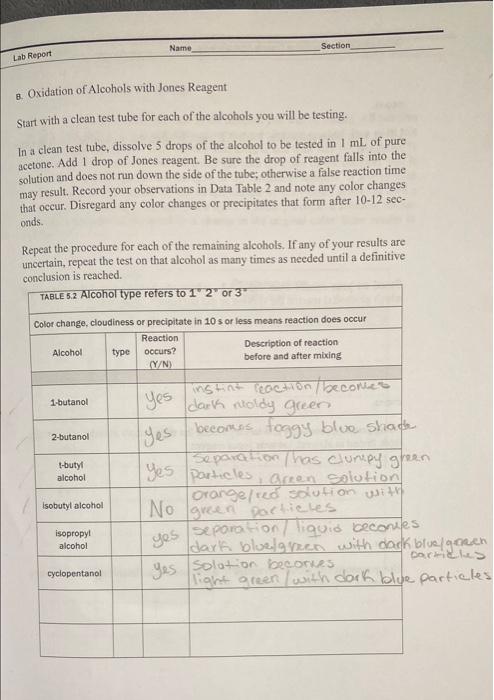 Lab Report Name Section
B. Oxidation of Alcohols with Jones Reagent
Start with a clean test tube for each of the alcohols you will be testing.
In a clean test tube, dissolve 5 drops of the alcohol to be tested in 1 mL of pure
acetone. Add 1 drop of Jones reagent. Be sure the drop of reagent falls into the
solution and does not run down the side of the tube; otherwise a false reaction time
may result. Record your observations in Data Table 2 and note any color changes
that occur. Disregard any color changes or precipitates that form after 10-12 sec-
onds.
Repeat the procedure for each of the remaining alcohols. If any of your results are
uncertain, repeat the test on that alcohol as many times as needed until a definitive
conclusion is reached.
TABLE 5.2 Alcohol type refers to 1° 2° or 3°
Color change, cloudiness or precipitate in 10 s or less means reaction does occur
Alcohol type Reaction occurs? (Y/N) Description of reaction before and after mixing
1-butanol yes instint reaction/becomes
dark moldy green
2-butanol yes becomes foggy blue shade
t-butyl alcohol yes separation/has clumpy green
particles, green solution
isobutyl alcohol No orange/red solution with
green particles
isopropyl alcohol yes separation/liquid becomes
dark blue/green with dark blue/green
particles
cyclopentanol yes solution becomes
light green/with dark blue particles